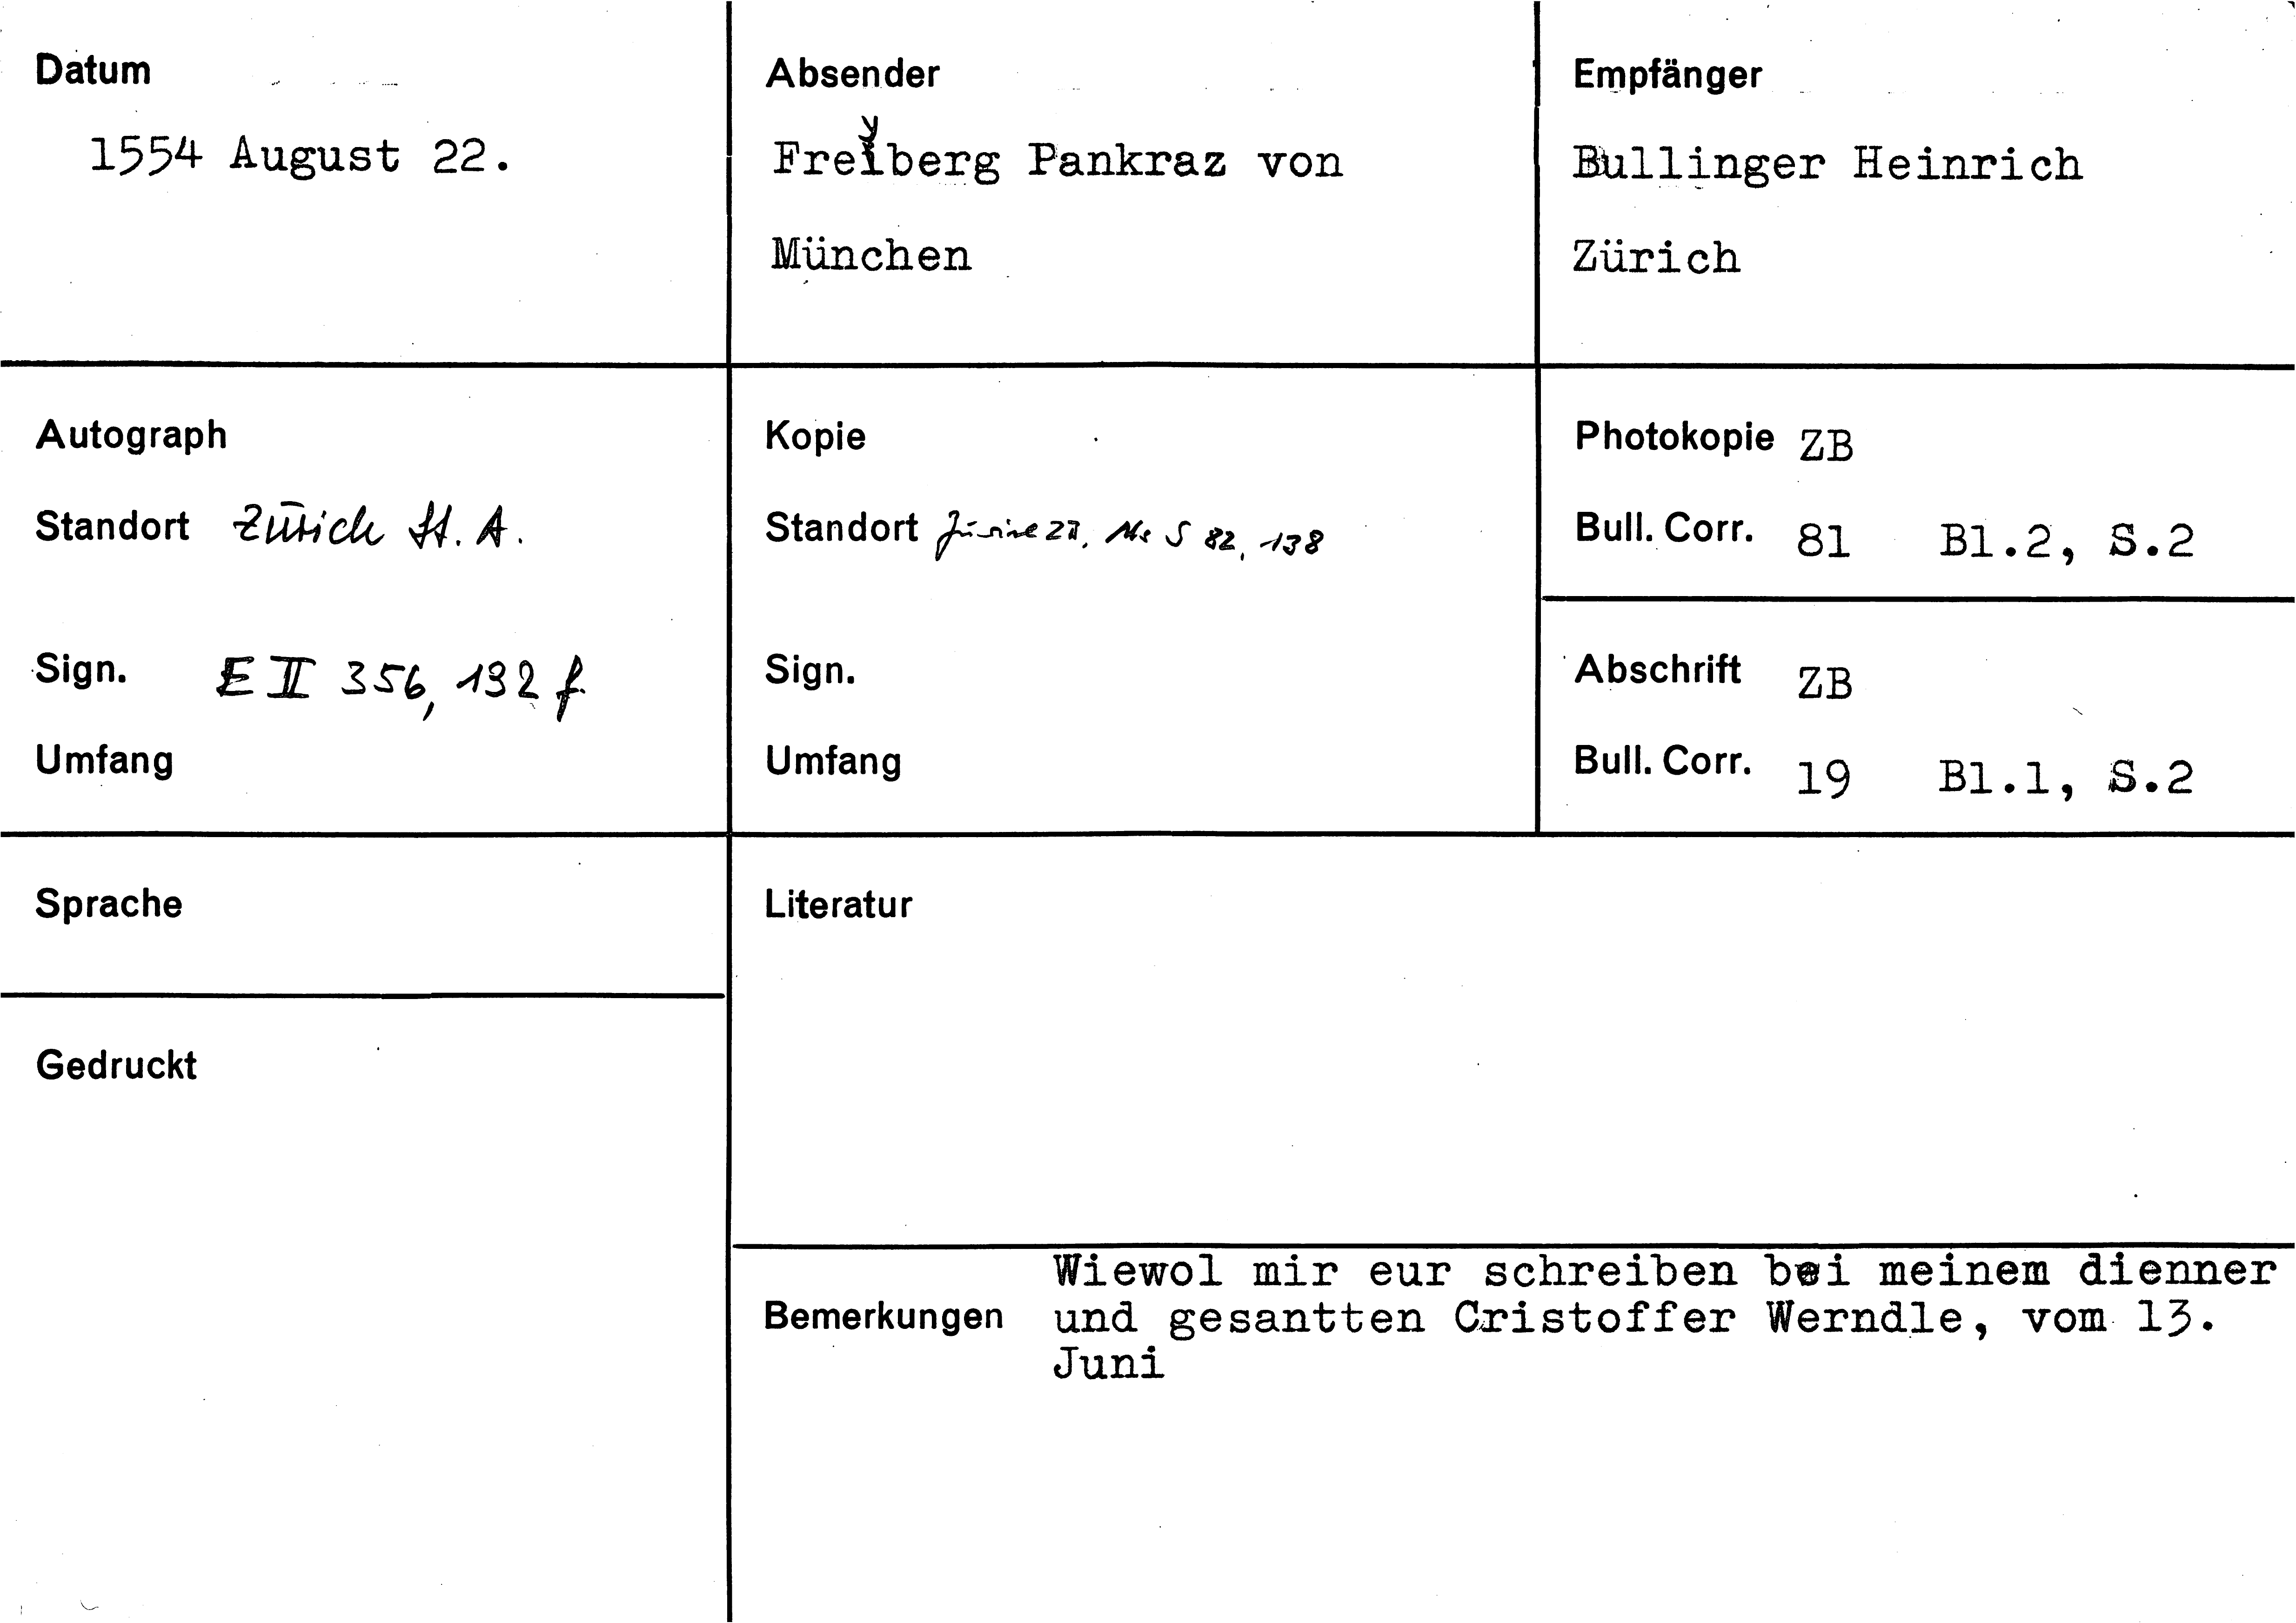 Datum
1554 August 22.
Absender
Freyberg Pankraz von
München
Empfänger
Bullinger Heinrich
Zürich
Autograph
Standort Zürich St. A.
Sign. E II 356, 132 f
Umfang
Kopie
Standort Zürich ZB, Ms S 82, 138
Sign.
Umfang
Photokopie ZB
Bull. Corr. 81 Bl.2, S.2
Abschrift ZB
Bull. Corr. 19 Bl.1, S.2
Sprache
Gedruckt
Literatur
Bemerkungen
Wiewol mir eur schreiben bei meinem dienner
und gesantten Cristoffer Werndle, vom 13.
Juni